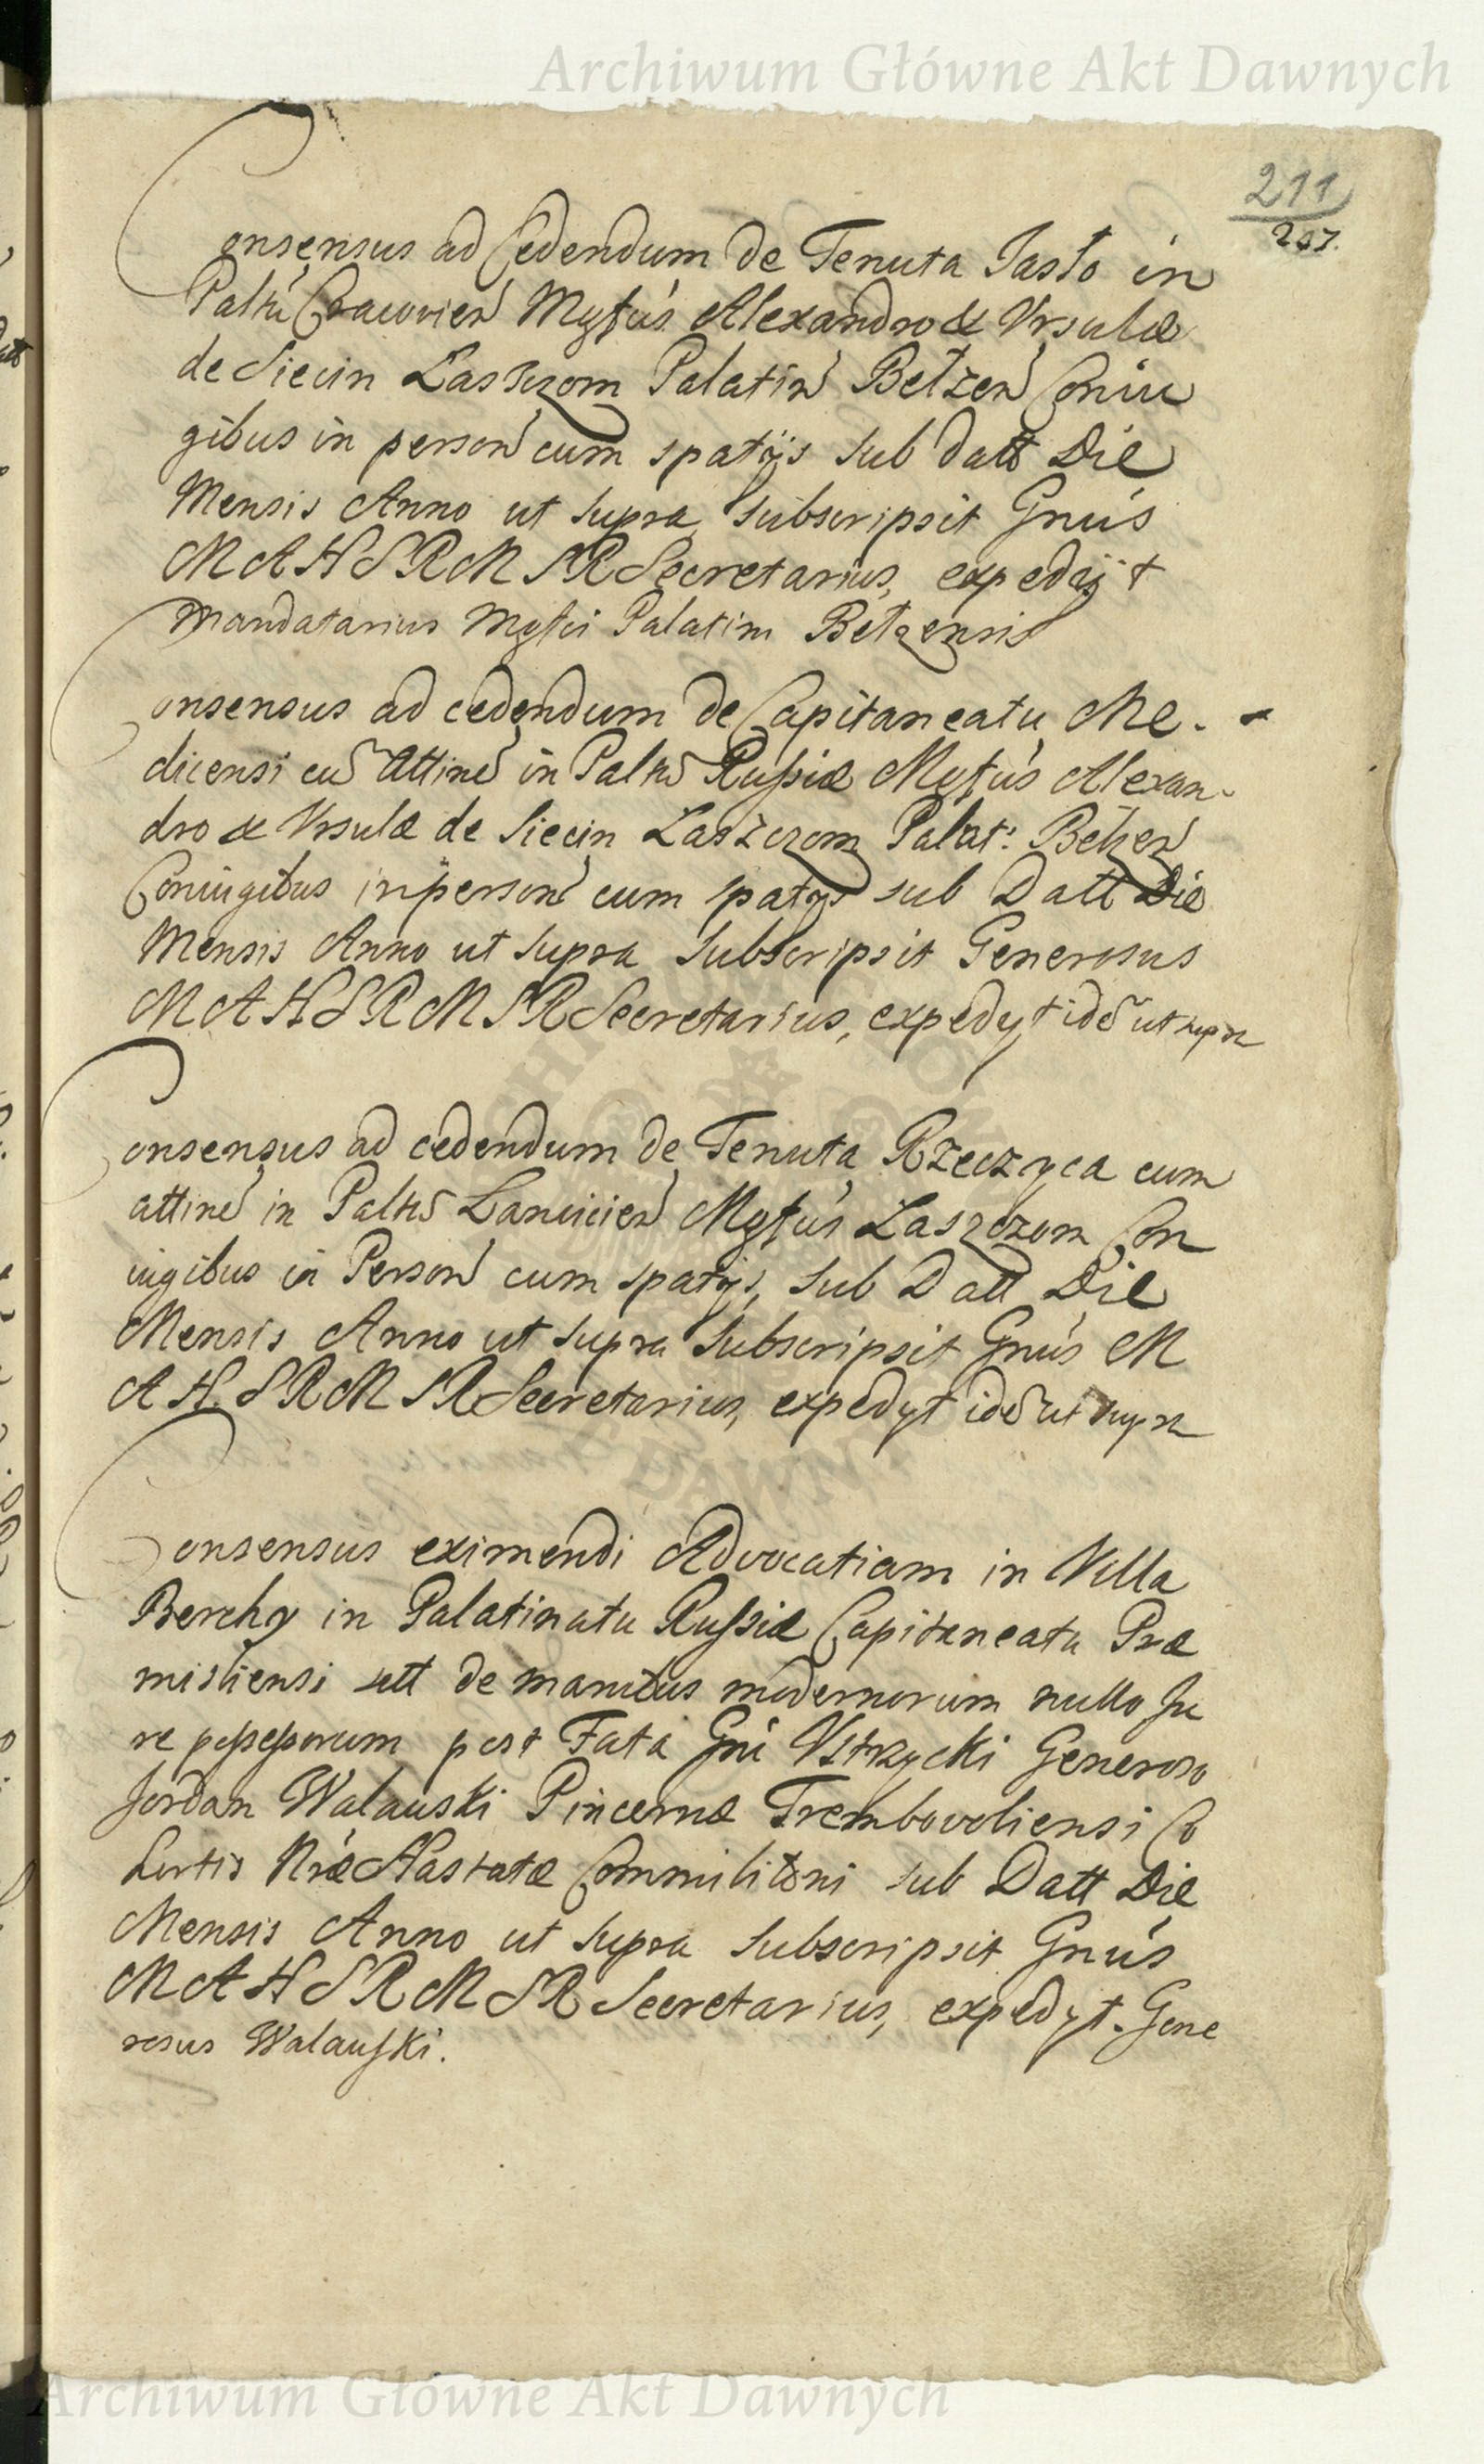 Archiwum Główne Akt Dawnych
211
207.
Consensus ad Cedendum de Tenuta Jasło in
Palttu Cracovien Mgfcis Alexandro & Vrsulæ
de Siecin Łaszczom Palatin Bełzen Coniu
gibus in person cum spatijs sub datt Die
Mensis Anno ut supra Subscripsit Gnus
M A H S R M S R Secretarius, expedijt
Mandatarius Mgfci Palatini Bełzensis
Consensus ad cedendum de Capitaneatu Me-
dicensi cu Attine in Palttu Russiæ Mgfcis Alexan-
dro & Vrsulæ de Siecin Łaszczom Palat: Bełzen
Coniugibus in person cum spatijs sub Datt Die
Mensis Anno ut supra Subscripsit Generosus
M A H S R M S R Secretarius, expedyt ide ut supra
Consensus ad cedendum de Tenuta Rzeczyca cum
attine in Palttu Lancicien Mgfcis Łaszczom Con
iugibus in Person cum spatijs, sub Datt Die
Mensis Anno ut supra Subscripsit Gnus M
A H. S R M S R Secretarius, expedyt ide ut supra
Consensus eximendi Advocatiam in Villa
Berehy in Palatinatu Russiæ Capitaneatu Præ
misliensi de manibus modernorum nullo Ju
re possessorum post Fata Gni Vstrzycki Generoso
Jordan Walauski Pincernæ Trembovoliensi Co
hortis Nræ Hastatæ Commilitoni sub Datt Die
Mensis Anno ut supra Subscripsit Gnus
M A H S R M S R Secretarius, expedyt. Gene
rosus Walauski.
Archiwum Główne Akt Dawnych